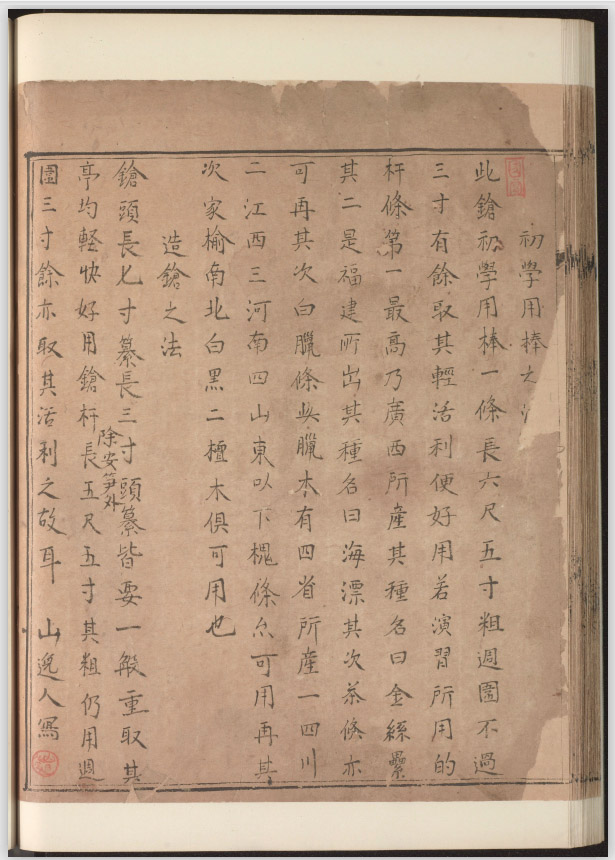 初學用棒之
此鎗初學用棒一條長六尺五寸粗週圍不過
三寸有餘取其輕活利便好用若演習所用的
杆條第一最高乃廣西所產其種名曰金絲纍
其二是福建所出其種名曰海漂其次茶條亦
可再其次白臘條此臘木有四省所產一四川
二江西三河南四山東以下槐條亦可用再其
次家榆南北白黑二檀木俱可用也
造鎗之法
鎗頭長七寸纂長三寸頭纂皆要一般重取其
亭均輕快好用鎗杆長除安笋外五尺五寸其粗仍用週
圍三寸餘亦取其活利之故耳 山逸人寫